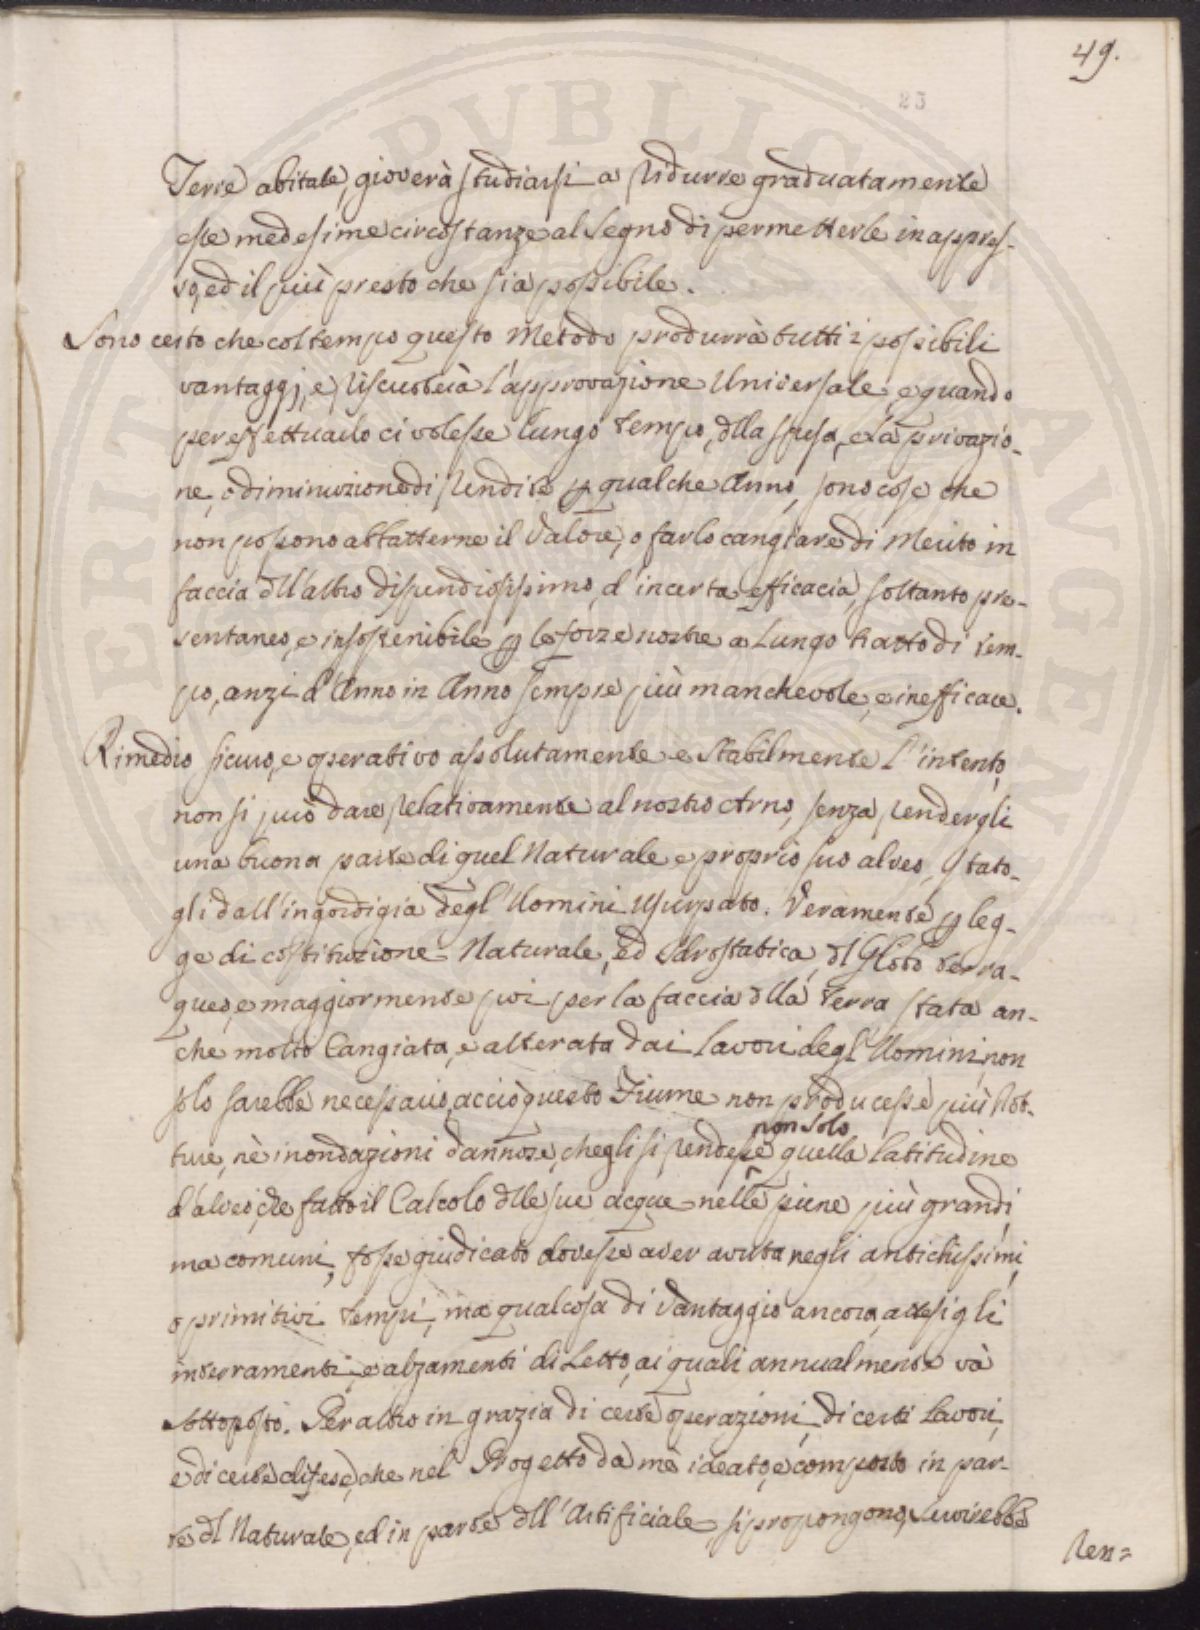 49.
23
Terre abitate, gioverà studiarsi a ridurre graduatamente
esse medesime circostanze al segno di permetterle in appres-
so, ed il più presto che sia possibile.
Sono certo che col tempo questo Metodo produrrà tutti i possibili
vantaggj, e riscuoterà l'approvazione Universale, e quando
per effettuarlo ci volesse lungo tempo, dlla spesa, e la privazio-
ne, o diminuzione di rendite p qualche Anno, sono cose che
non possono abbatterne il valore, o farlo cangiare di Merito in
faccia dll'altro dispendiosissimo, d'incerta efficacia, soltanto pre-
sentaneo, e insostenibile p le forze nostre a lungo tratto di tem-
po, anzi d'Anno in Anno sempre più manchevole, e inefficace.
Rimedio sicuro, e operativo assolutamente e stabilmente l'intento,
non si può dare relativamente al nostro Arno, senza rendergli
una buona parte di quel Naturale e proprio suo alveo, stato-
gli dall'ingordigia degl'Uomini usurpato. Veramente p leg-
ge di costituzione Naturale, ed Idrostatica, dl Globo terra-
queo, e maggiormente poi per la faccia dlla terra stata an-
che molto Cangiata, e alterata dai lavori degl'Uomini, non
solo sarebbe necessario, acciò questo Fiume non producesse più Rot-
ture, nè inondazioni dannose, che gli si rendesse non solo quella latitudine
d'alveo, che fatto il Calcolo dlle sue acque nelle piene più grandi,
ma comuni, fosse giudicato dovesse aver avuta negli antichissimi,
o primitivi tempi, ma qualcosa di vantaggio ancora, attesi gli
interramenti, e alzamenti di Letto, ai quali annualmente và
sottoposto. Per altro in grazia di certe operazioni, di certi lavori,
e di certe difese, che nel Progetto da mè ideato, e composto in par-
te dl Naturale, ed in parte dll'Artificiale, si propongono,
Ren=